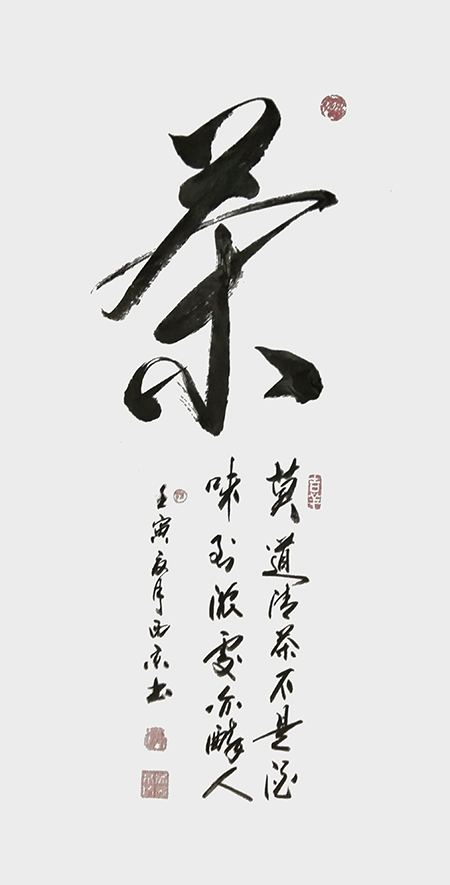 茶
莫道清茶不是酒
味到浓处亦醉人
壬寅 月西京书